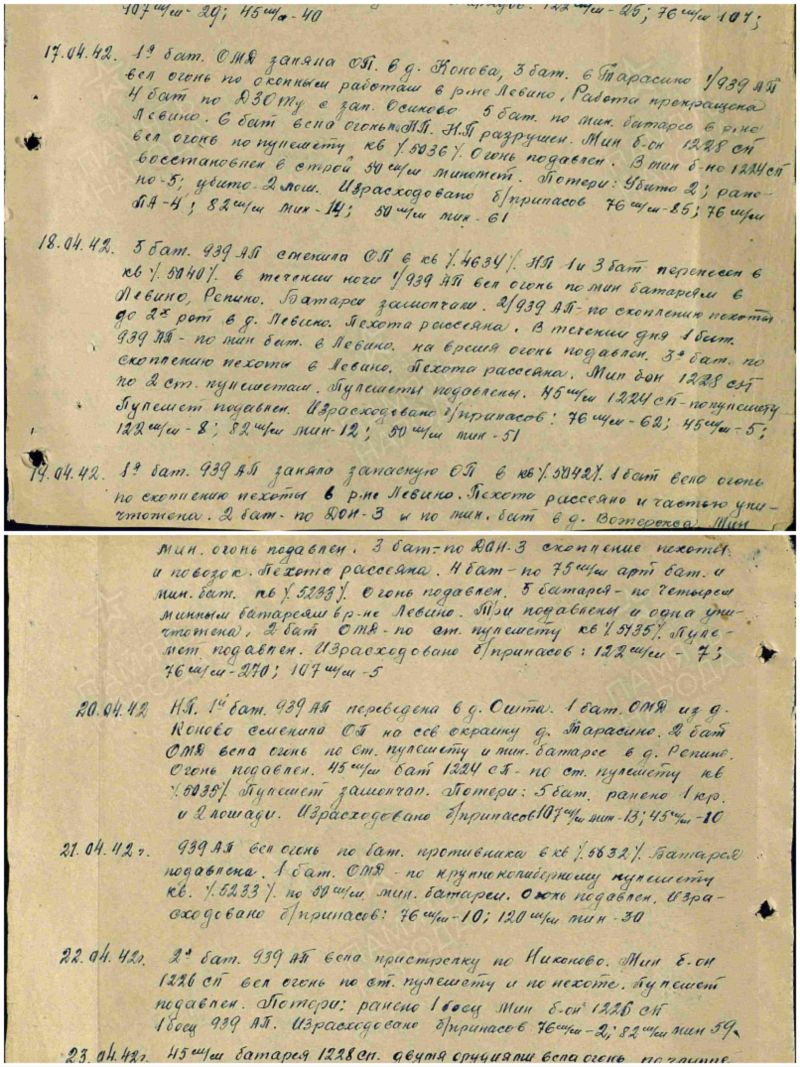 107 м/м - 29; 45 м/м - 40 122 м/м - 25; 76 м/м 107;
17.04.42. 1я бат. ОМД заняла ОП в д. Конова, 3 бат. в Тарасино 1/939 АП
вел огонь по оконным работам в р-не Левино. Работа прекращена
4 бат по ДЗОТу с зап. Осиново 5 бат. по мин. батарее в р-не
Левино. 6 бат вела огонь НП. НП разрушен. Мин б-он 1228 сп
вел огонь по пулемету кв /.5036/. Огонь подавлен. В мин б-но 1224 сп
восстановлен в строй 50 м/м миномет. Потери: Убито 2; ране-
но-5; убито-2 лош. Израсходовано б/припасов 76 м/м-85; 76 м/м
ПА-4; 82 м/м мин-14; 50 м/м мин-61
18.04.42. 5 бат. 939 АП сменила ОП в кв /.4634/. НП 1 и 3 бат перенесен в
кв /.5040/. в течении ночи 1/939 АП вел огонь по мин батареям в
Левино, Репино. Батареи замолчали. 2/939 АП-по скоплению пехоты
до 2х рот в д. Левино. Пехота рассеяна. В течении дня 1 бат.
939 АП-по мин бат. в Левино. на время огонь подавлен. 3я бат. по
скоплению пехоты в Левино. Пехота рассеяна. Мин б-он 1228 сп
по 2 ст. пулеметам. Пулеметы подавлены. 45 м/м 1224 СП-по пулемету
Пулемет подавлен. Израсходовано б/припасов: 76 м/м-62; 45 м/м-5;
122 м/м-8; 82 м/м мин-12; 50 м/м мин-51
19.04.42. 1я бат. 939 АП заняла запасную ОП в кв /.5042/. 1 бат вела огонь
по скоплению пехоты в р-не Левино. Пехота рассеяно и частью уни-
чтожена. 2 бат-по ДОН-3 и по мин. бат в д. Вотерекса. Мин
мин. огонь подавлен. 3 бат-по ДОН-3 скопление пехоты
и повозок. Пехота рассеяна. 4 бат-по 75 м/м арт бат. и
мин. бат. кв /.5233/. Огонь подавлен. 5 батарея-по четырем
минным батареям в р-не Левино. Три подавлены и одна уни-
чтожена, 2 бат ОМД-по ст. пулемету кв /.5135/. Пуле-
мет подавлен. Израсходовано б/припасов: 122 м/м-7;
76 м/м-270; 107 м/м-5
20.04.42 НП. 1й бат. 939 АП переведена в д. Ошта. 1 бат. ОМД из д.
Коново сменила ОП на сев окраину д. Тарасино. 2 бат
ОМД вела огонь по ст. пулемету и мин. батарее в д. Репино.
Огонь подавлен. 45 м/м бат 1224 СП-по ст. пулемету кв
/.5035/ Пулемет замолчал. Потери: 5 бат. ранено 1 кр.
и 2 лошади. Израсходовано б/припасов 107 м/м мин-13; 45 м/м-10
21.04.42 г. 939 АП вел огонь по бат. противника в кв /.5632/. Батарея
подавлена. 1 бат. ОМД-по крупнокалиберному пулемету
кв. /.5233/. по 50 м/м мин. батареи. Огонь подавлен. Изра-
сходовано б/припасов: 76 м/м-10; 120 м/м мин-30
22.04.42г. 2я бат. 939 АП вела пристрелку по Никоново. Мин б-он
1226 СП вел огонь по ст. пулемету и по пехоте. Пулемет
подавлен. Потери: ранено 1 боец Мин б-он 1226 СП
1 боец 939 АП. Израсходосано б/припасов 76 м/м-2; 82 м/м мин 59.
23.04.42г. 45 м/м батарея 1228 сп. двумя орудиями вела огонь по